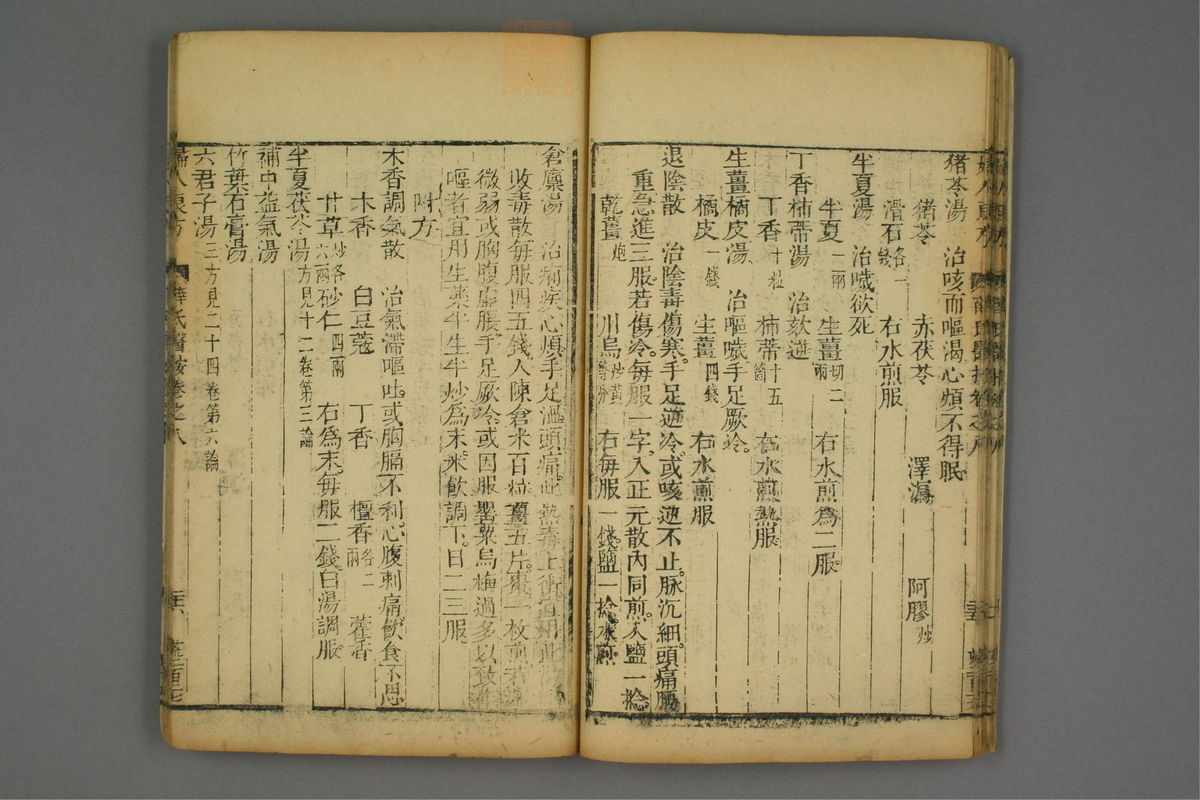 猪苓湯 治咳而嘔渴心煩不得眠
猪苓 赤茯苓 澤瀉 阿膠炒
滑石各一錢 右水煎服
半夏湯 治噦欲死
半夏一兩 生薑切二兩 右水煎爲二服
丁香柿蒂湯 治欬逆
丁香十粒 柿蒂十五箇 右水煎熱服
生薑橘皮湯 治嘔噦手足厥冷
橘皮一錢 生薑四錢 右水煎服
退陰散 治陰毒傷寒手足逆冷或咳逆不止脉沉細頭痛腰
重急進三服若傷冷每服一字入正元散內同煎入鹽一捻
乾薑炮 川烏炒黃等分 右每服一錢鹽一捻水煎
倉廩湯 治痢疾心煩手足溫頭痛此熱毒上衝宜用此
敗毒散每服四五錢入陳倉米百粒薑五片棗一枚煎若
微弱或胸腹虛脹手足厥冷或因服罌粟烏梅過多以致
嘔者宜用生藥半生半炒爲末米飲調下日二三服
附方
木香調氣散 治氣滯嘔吐或胸膈不利心腹刺痛飲食不思
木香 白豆蔻 丁香 檀香各二兩 藿香
甘草炒各六兩 砂仁四兩 右爲末每服二錢白湯調服
半夏茯苓湯方見十二卷第三論
補中益氣湯
竹葉石膏湯
六君子湯三方見二十四卷第六論
婦人良方 薛氏醫按卷之八